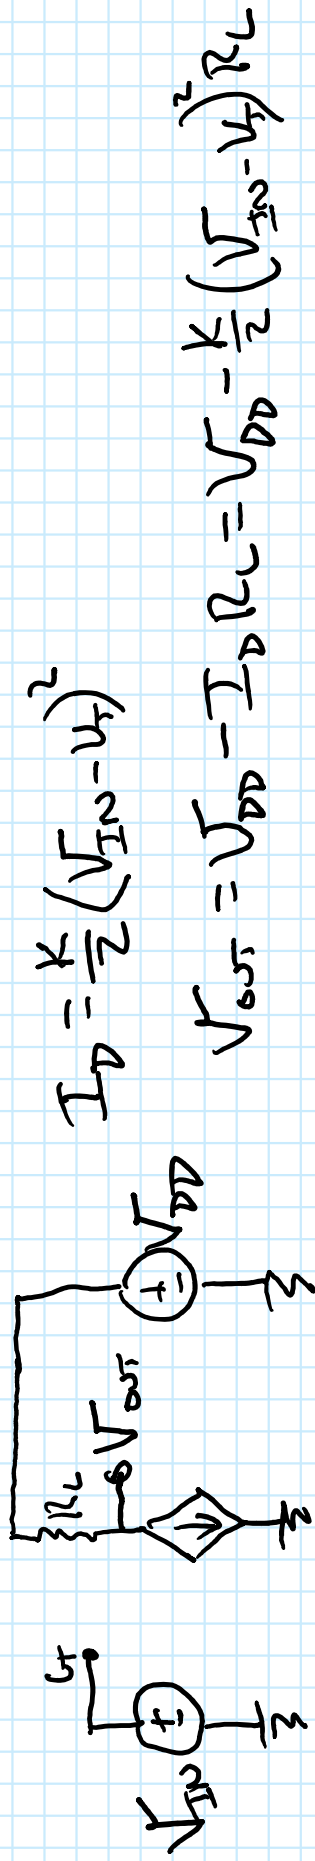 V_IN
G
R_L
V_OUT
V_DD
I_D = K/2 (V_IN - V_T)²
V_OUT = V_DD - I_D R_L = V_DD - K/2 (V_IN - V_T)² R_L